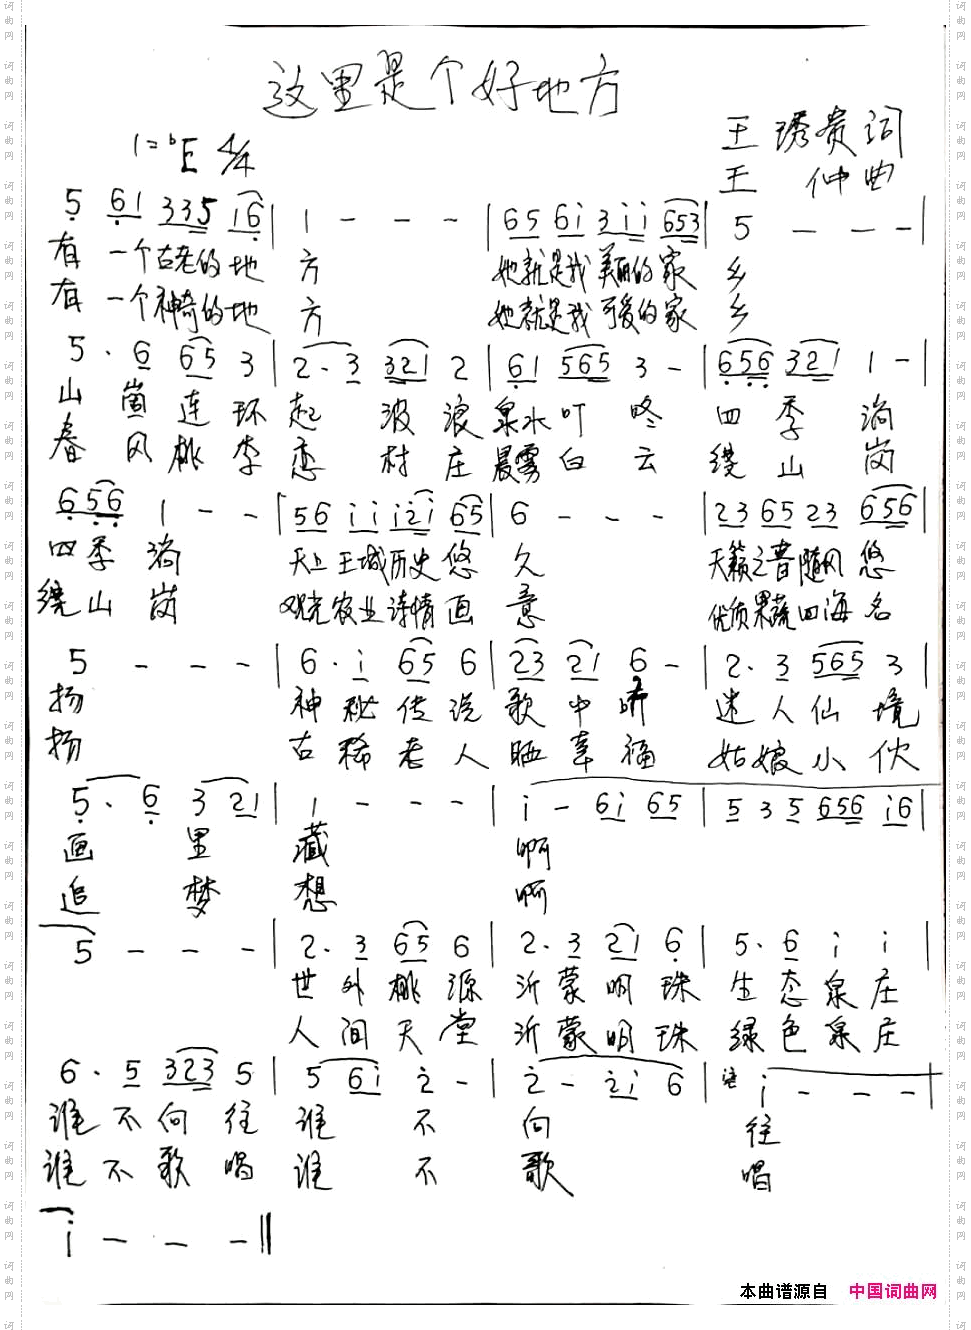 这里是个好地方
1=ᵇE 4/4
王琇贵词
王 仲曲
5 61 335 16 | 1 - - - | 65 6i 3ii 653 | 5 - - - |
有 一个古老的地 方 她就是我美丽的家 乡
有 一个神奇的地 方 她就是我可爱的家 乡
5· 6 65 3 | 2· 3 321 2 | 61 565 3 - | 656 321 1 - |
山 崮 连 环 起 波 浪 泉水叮 咚 四 季 淌
春 风 桃 李 恋 村 庄 晨雾白 云 绕 山 岗
656 1 - - | 56 ii i2i 65 | 6 - - - | 23 65 23 656 |
四 季 淌 天上王城历史悠 久 天籁之音随风 悠
绕 山 岗 观光农业诗情画 意 优质果蔬四海 名
5 - - - | 6· i 65 6 | 23 21 6 - | 2· 3 565 3 |
扬 神 秘 传 说 歌 中 听 迷 人 仙 境
扬 古 稀 老 人 晒 幸 福 姑 娘 小 伙
5· 6 3 21 | 1 - - - | i - 6i 65 | 5 3 5 656 i6 |
画 里 藏 啊
追 梦 想 啊
5 - - - | 2· 3 65 6 | 2· 3 21 6 | 5· 6 i i |
世 外 桃 源 沂 蒙 明 珠 生 态 泉 庄
人 间 天 堂 沂 蒙 明 珠 绿 色 泉 庄
6· 5 323 5 | 5 6i 2 - | 2 - 2i 6 | i - - - |
谁 不 向 往 谁 不 向 往
谁 不 歌 唱 谁 不 歌 唱
i - - - ‖
本曲谱源自 中国词曲网